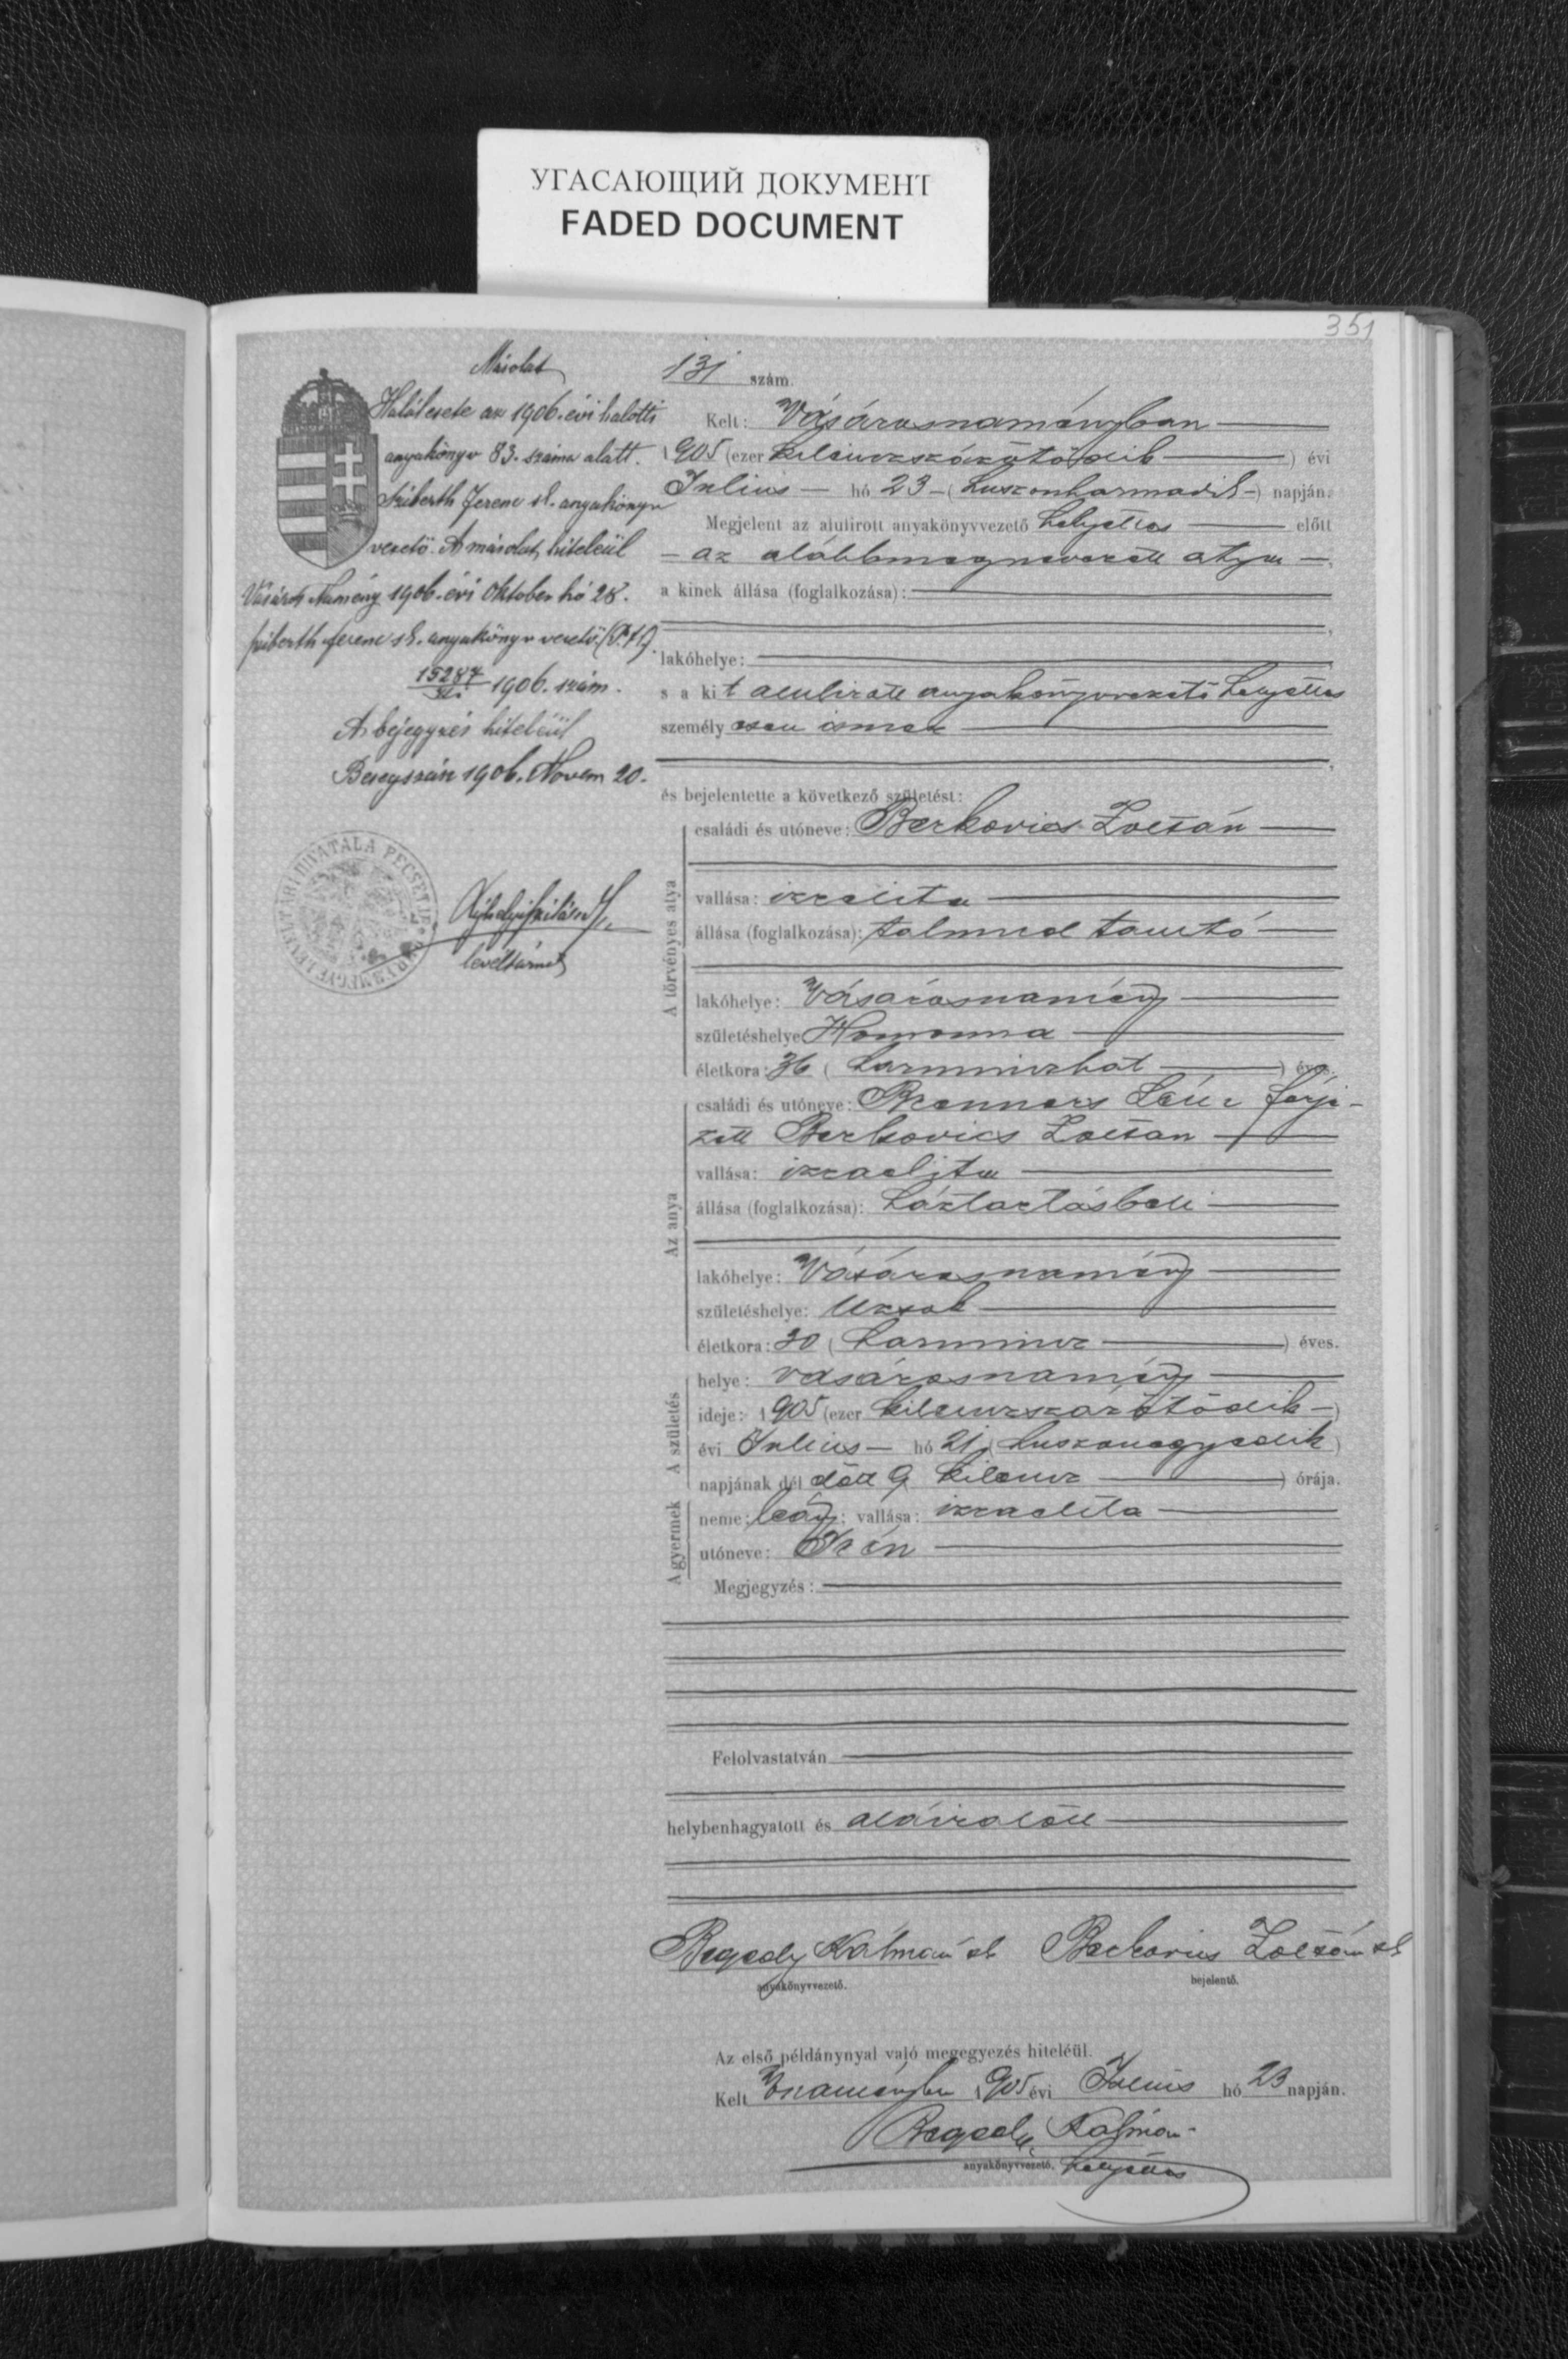 УГАСАЮЩИЙ ДОКУМЕНТ
FADED DOCUMENT
351
Másolat
Halálesete az 1906. évi halotti
anyakönyv 83. száma alatt.
Sziberth Ferenc sk. anyakönyv
vezető. A másolat hiteléül
Vásáros Namény 1906. évi Október hó 28.
Sziberth Ferenc sk. anyakönyv vezető (P. H.)
15287 1906. szám.
A bejegyzés hiteléül
Beregszász 1906. Novem 20.
levéltárnok
131 szám.
Kelt: Vásárosnaményban
1905 (ezer kilenczszázötödik) évi
Julius hó 23 (huszonharmadik) napján.
Megjelent az alulirott anyakönyvvezető helyettes előtt
az alábbmegnevezett atya
a kinek állása (foglalkozása):
lakóhelye:
s a kit alulirott anyakönyvvezető helyettes
személyesen ismer
és bejelentette a következő születést:
A törvényes atya
családi és utóneve: Berkovics Zoltán
vallása: izraelita
állása (foglalkozása): talmud tanító
lakóhelye: Vásárosnamény
születéshelye Homonna
életkora: 36 (harminczhat) éves.
Az anya
családi és utóneve: Brenners Léni férje-
zett Berkovics Zoltan
vallása: izraelita
állása (foglalkozása): háztartásbeli
lakóhelye: Vásárosnamény
születéshelye: Uzsok
életkora: 30 (harmincz) éves.
A születés
helye: Vásárosnamény
ideje: 1905 (ezer kilenczszázötödik)
évi Julius hó 21 (huszonegyedik)
napjának dél előtt 9 kilencz) órája.
A gyermek
neme: leány; vallása: izraelita
utóneve: Irén
Megjegyzés:
Felolvastatván
helybenhagyatott és aláiratott
Regedy Kálmán sk Berkovics Zoltán sk
anyakönyvvezető. bejelentő.
Az első példánynyal való megegyezés hiteléül.
Kelt Vnaményben 1905 évi Julius hó 23 napján.
Regedy Kálmán
anyakönyvvezető. helyettes